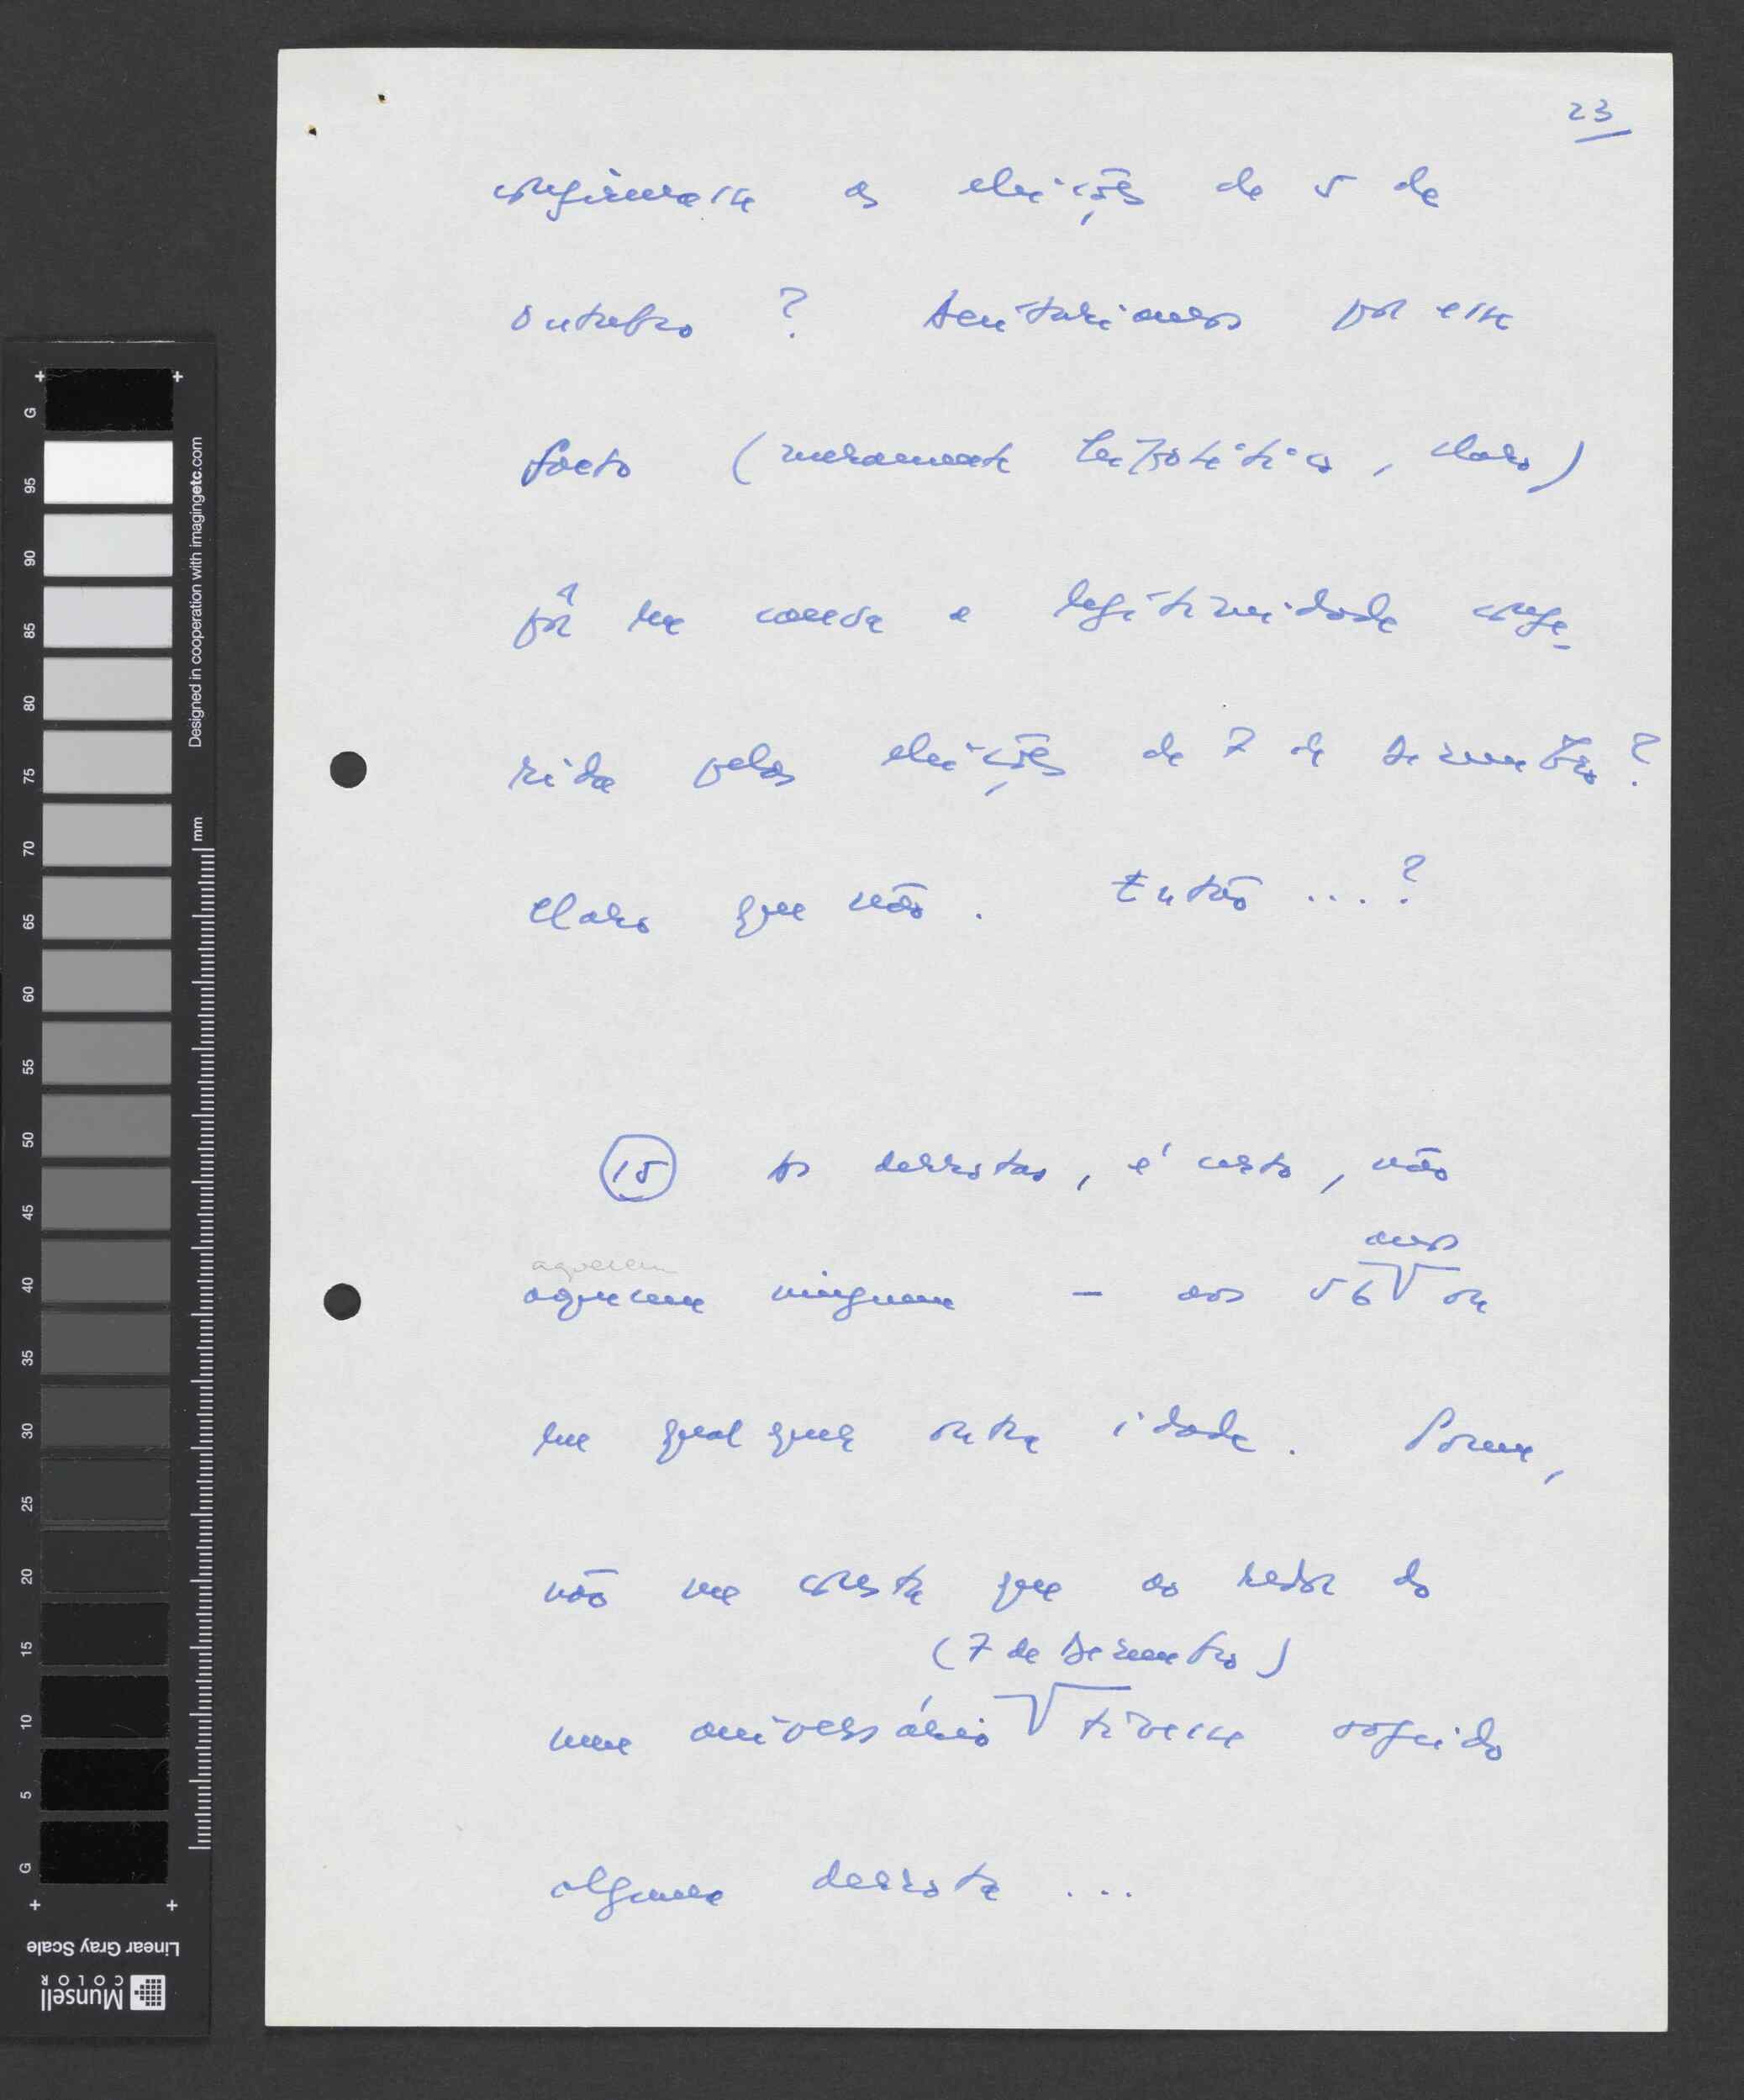 23
confirmasse as eleições de 5 de
Outubro ? Aceitaríamos por esse
facto (meramente hipotético, claro)
pôr em causa a legitimidade confe-
rida pelas eleições de 7 de Dezembro?
Claro que não. Então ....?
15 As derrotas, é certo, não
aquecem
anos
aquecem ninguem — aos 56 ou
em qualquer outra idade. Porem,
não me consta que ao redor do
(7 de Dezembro)
meu aniversário tivesse
alguma derrota ...
G
95
90
85
80
75
70
65
60
55
50
45
40
35
30
25
20
15
10
5
G
Designed in cooperation with imagingetc.com
mm
Linear Gray Scale
Munsell
COLOR